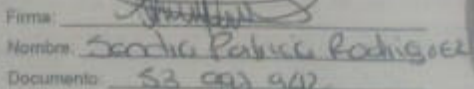 Firma:
Nombre: Sandra Patricia Rodriguez
Documento: 53